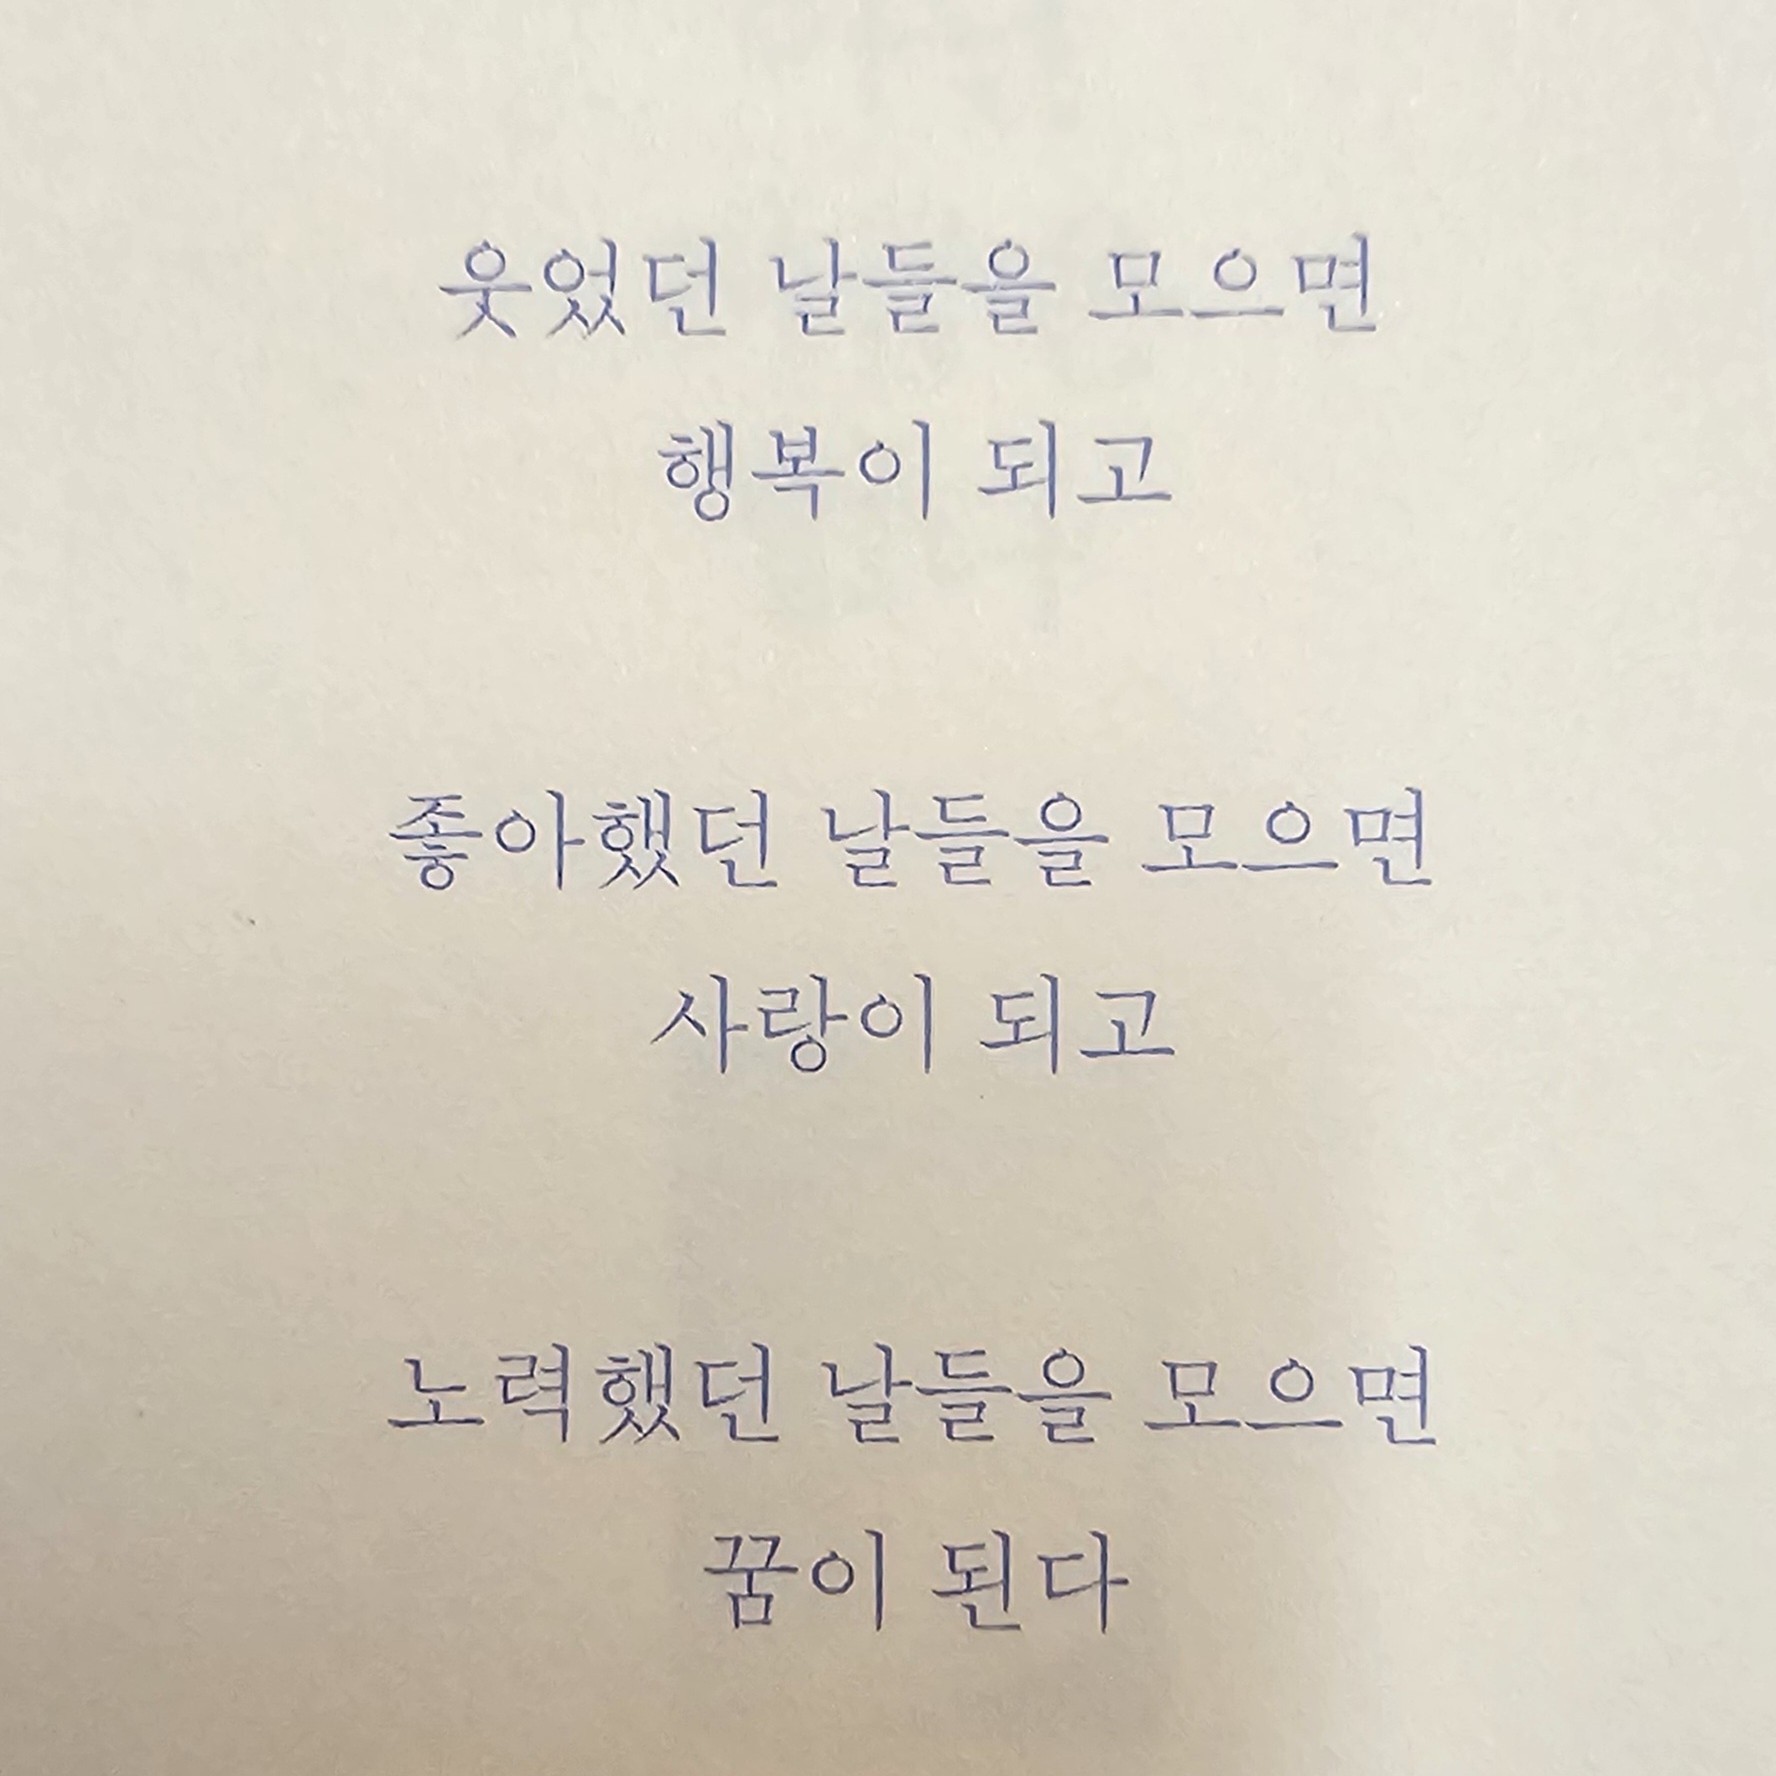 웃었던 날들을 모으면
행복이 되고
좋아했던 날들을 모으면
사랑이 되고
노력했던 날들을 모으면
꿈이 된다